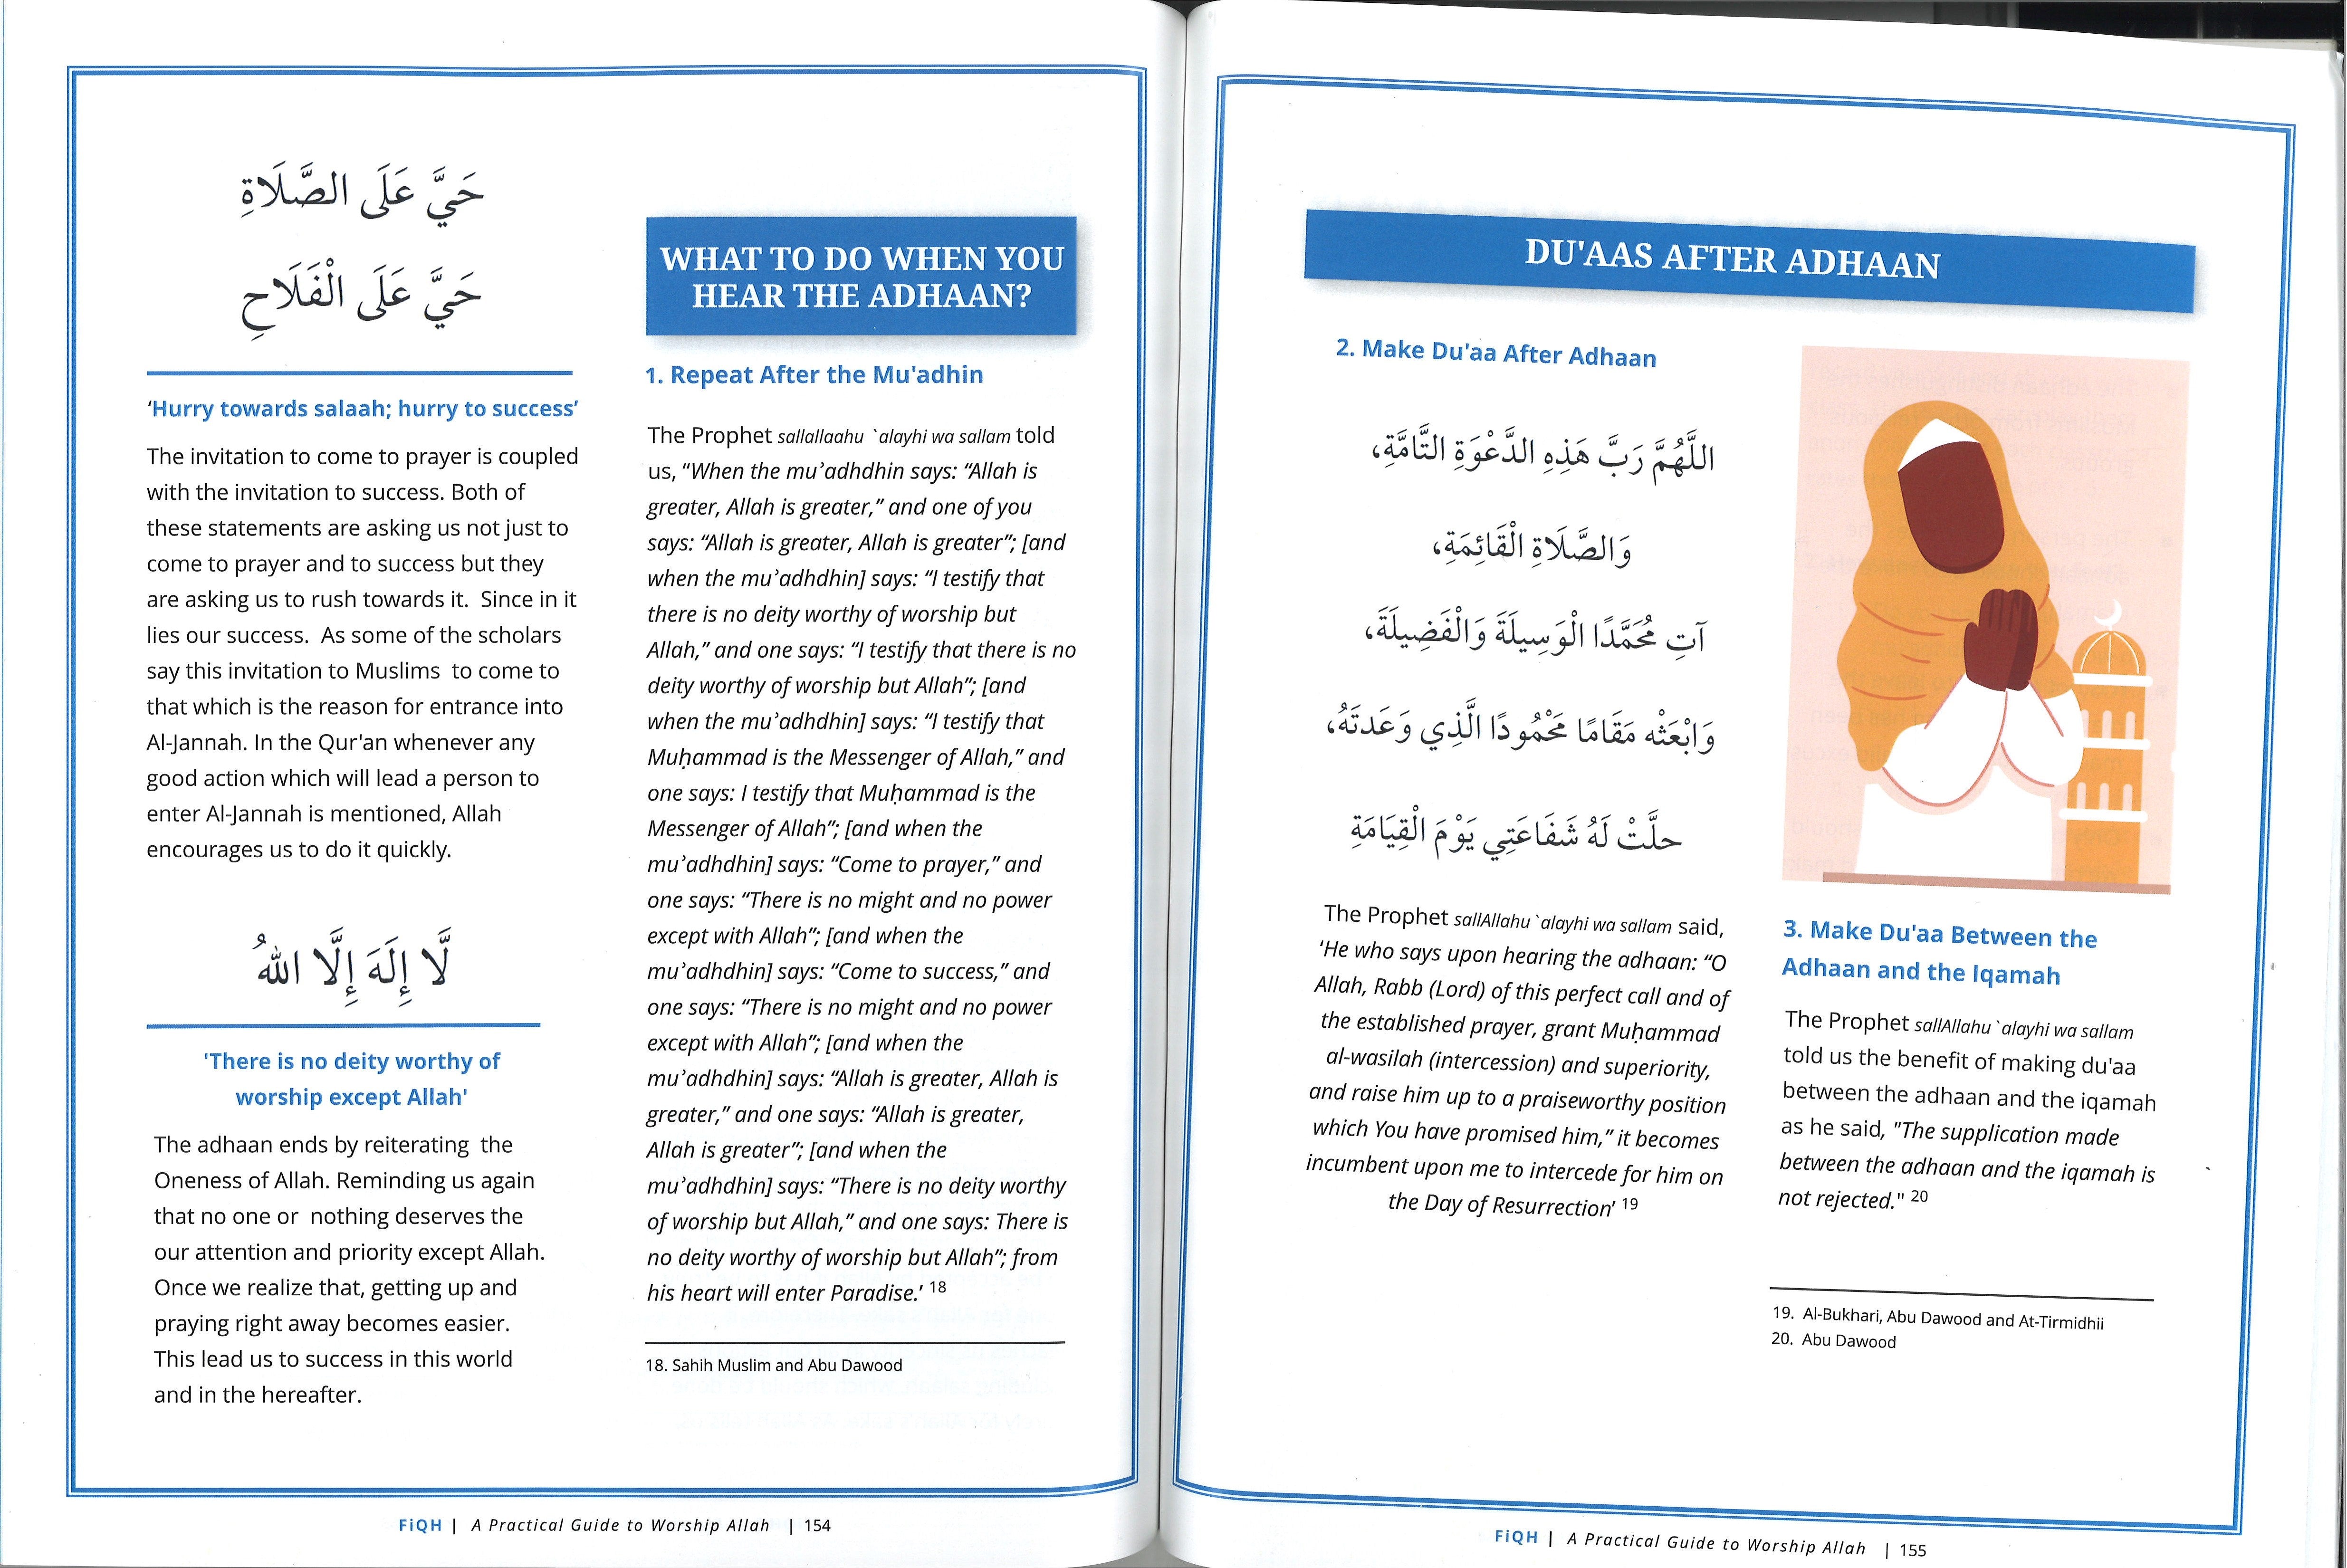 حَيَّ عَلَى الصَّلَاةِ
حَيَّ عَلَى الْفَلَاحِ
‘Hurry towards salaah; hurry to success’
The invitation to come to prayer is coupled
with the invitation to success. Both of
these statements are asking us not just to
come to prayer and to success but they
are asking us to rush towards it.  Since in it
lies our success.  As some of the scholars
say this invitation to Muslims  to come to
that which is the reason for entrance into
Al-Jannah. In the Qur'an whenever any
good action which will lead a person to
enter Al-Jannah is mentioned, Allah
encourages us to do it quickly.
لَّا إِلَهَ إِلَّا اللهُ
'There is no deity worthy of
worship except Allah'
The adhaan ends by reiterating  the
Oneness of Allah. Reminding us again
that no one or  nothing deserves the
our attention and priority except Allah.
Once we realize that, getting up and
praying right away becomes easier.
This lead us to success in this world
and in the hereafter.
WHAT TO DO WHEN YOU
HEAR THE ADHAAN?
1. Repeat After the Mu'adhin
The Prophet sallallaahu `alayhi wa sallam told
us, “When the mu’adhdhin says: “Allah is
greater, Allah is greater,” and one of you
says: “Allah is greater, Allah is greater”; [and
when the mu’adhdhin] says: “I testify that
there is no deity worthy of worship but
Allah,” and one says: “I testify that there is no
deity worthy of worship but Allah”; [and
when the mu’adhdhin] says: “I testify that
Muḥammad is the Messenger of Allah,” and
one says: I testify that Muḥammad is the
Messenger of Allah”; [and when the
mu’adhdhin] says: “Come to prayer,” and
one says: “There is no might and no power
except with Allah”; [and when the
mu’adhdhin] says: “Come to success,” and
one says: “There is no might and no power
except with Allah”; [and when the
mu’adhdhin] says: “Allah is greater, Allah is
greater,” and one says: “Allah is greater,
Allah is greater”; [and when the
mu’adhdhin] says: “There is no deity worthy
of worship but Allah,” and one says: There is
no deity worthy of worship but Allah”; from
his heart will enter Paradise.’ 18
18. Sahih Muslim and Abu Dawood
FiQH | A Practical Guide to Worship Allah | 154
DU'AAS AFTER ADHAAN
2. Make Du'aa After Adhaan
اللَّهُمَّ رَبَّ هَذِهِ الدَّعْوَةِ التَّامَّةِ،
وَالصَّلَاةِ الْقَائِمَةِ،
آتِ مُحَمَّدًا الْوَسِيلَةَ وَالْفَضِيلَةَ،
وَابْعَثْه مَقَامًا مَحْمُودًا الَّذِي وَعَدتَهُ،
حلَّتْ لَهُ شَفَاعَتِي يَوْمَ الْقِيَامَةِ
The Prophet sallAllahu `alayhi wa sallam said,
‘He who says upon hearing the adhaan: “O
Allah, Rabb (Lord) of this perfect call and of
the established prayer, grant Muḥammad
al-wasilah (intercession) and superiority,
and raise him up to a praiseworthy position
which You have promised him,” it becomes
incumbent upon me to intercede for him on
the Day of Resurrection’ 19
3. Make Du'aa Between the
Adhaan and the Iqamah
The Prophet sallAllahu `alayhi wa sallam
told us the benefit of making du'aa
between the adhaan and the iqamah
as he said, "The supplication made
between the adhaan and the iqamah is
not rejected." 20
19. Al-Bukhari, Abu Dawood and At-Tirmidhii
20. Abu Dawood
FiQH | A Practical Guide to Worship Allah | 155